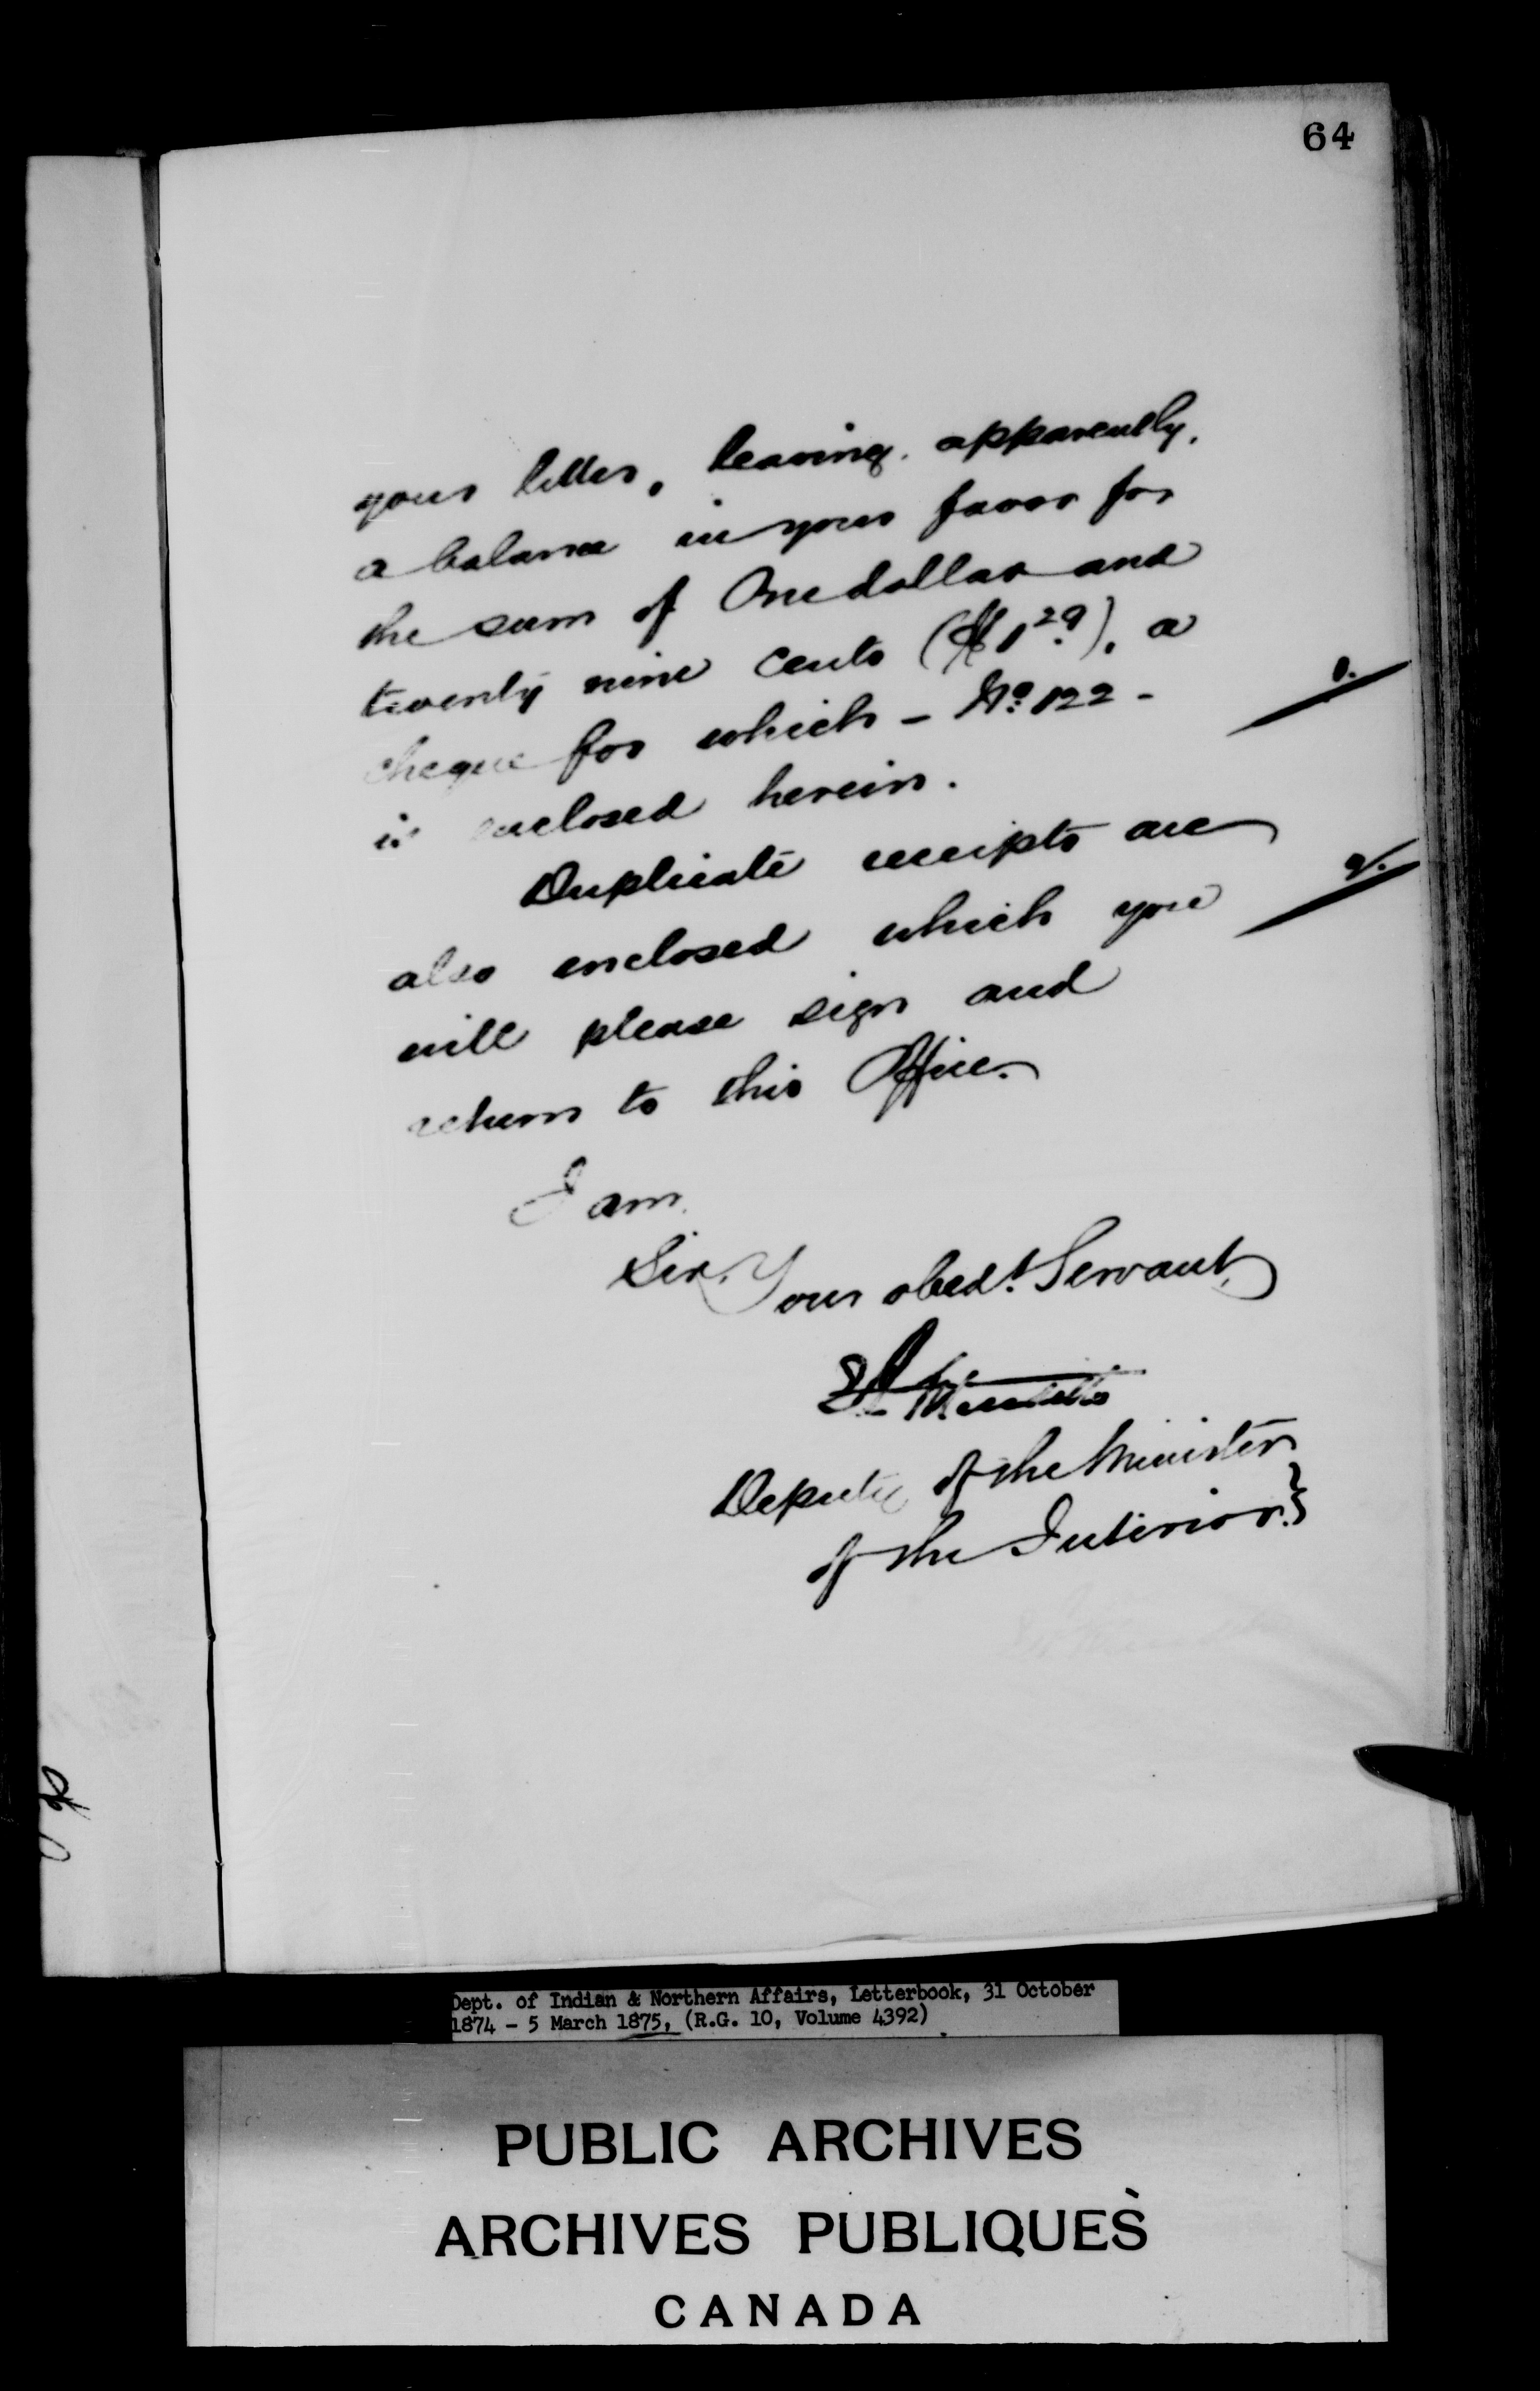 64
your letter, leaving, apparently,
a balance in your favor for
the sum of One dollar and
twenty nine cents ($1.29), a
cheque for which – No. 122 –
1.
is enclosed herein.
Duplicate receipts are
2.
also enclosed which you
will please sign and
return to this Office.
I am,
Sir, Your obedt. Servant,
Deputy of the Minister
of the Interior.}
Dept. of Indian & Northern Affairs, Letterbook, 31 October
1874 - 5 March 1875, (R.G. 10, Volume 4392)
PUBLIC ARCHIVES
ARCHIVES PUBLIQUES
CANADA